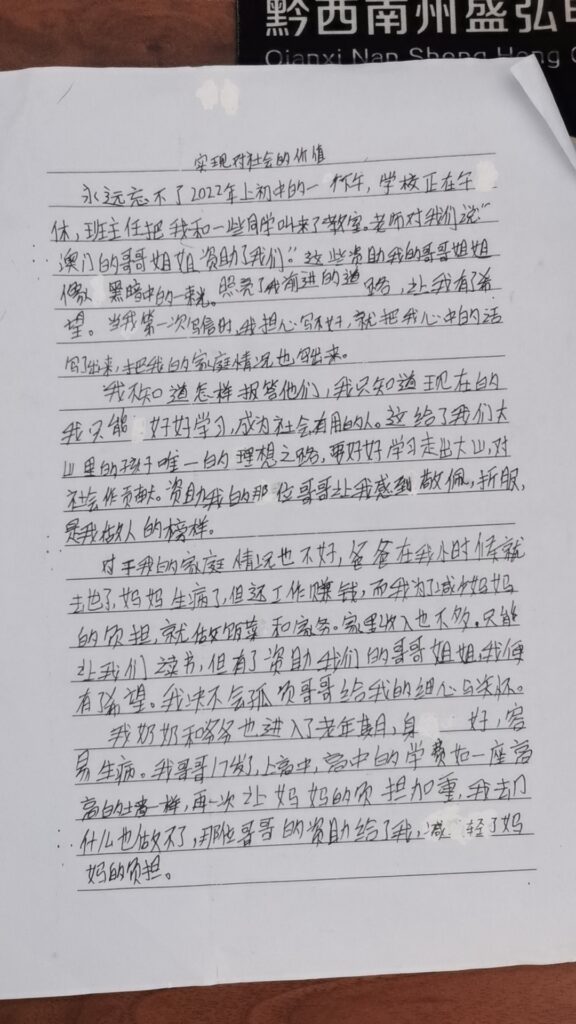 黔西南州盛弘
Qianxi Nan Sheng Hong
实现对社会的价值
永远忘不了2022年上初中的一 下午，学校正在午
休，班主任把我和一些同学叫来了教室。老师对我们说“
澳门的哥哥姐姐资助了我们”。这些资助我的哥哥姐姐
像 黑暗中的一束光。照亮了我前进的道路，让我有了希
望。当我第一次写信时，我担心写不好，就把我心中的话
写了出来，把我的家庭情况也写出来。
我不知道怎样报答他们，我只知道现在的
我只能 好好学习，成为社会有用的人。这给了我们大
山里的孩子唯一的理想之路，要好好学习走出大山，对
社会作贡献。资助我的那位哥哥让我感到敬佩，折服，
是我做人的榜样。
对于我的家庭情况也不好，爸爸在我小时候就
去世了，妈妈生病了，但还工作赚钱，而我为了减少妈妈
的负担，就做饭菜和家务。家里收入也不多。只能
让我们读书，但有了资助我们的哥哥姐姐，我便
有了希望。我决不会孤负哥哥给我的细心与关怀。
我奶奶和爷爷也进入了老年期，身 好，容
易生病。我哥哥17岁了，上高中，高中的学费如一座高
高的 一样，再一次让妈妈的负担加重，我去
什么也做不了，那位哥哥的资助给了我，减轻了妈
妈的负担。